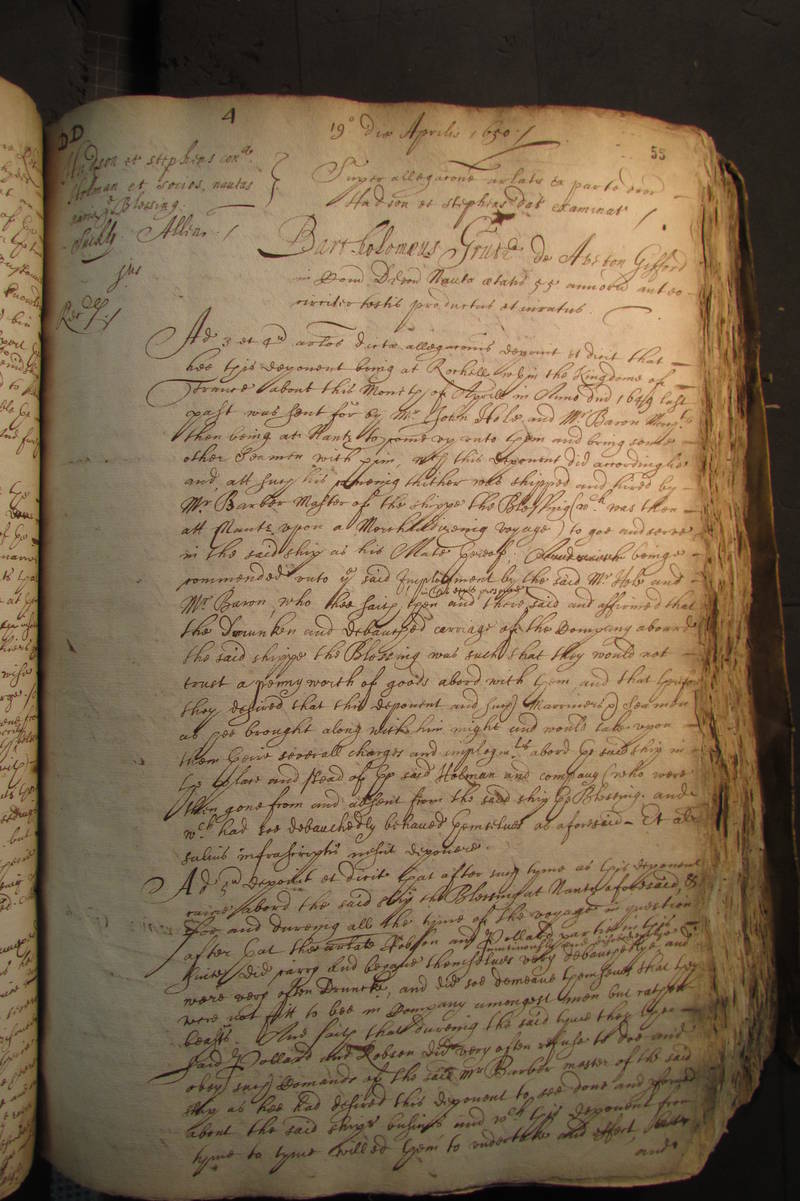 DD
4
19o Die Aprilis 1650
55
Hudson et Stephens con
Holman et socios, nautas
navis ye Blessing.
Suckly. Allen.
Super allegatione arlata ex parte dcor
Hudson et Stephens dat examinat
jus
Bartholomeus de Abston Gifford
in Com Devon Nauta ætatis 55 annoru aut eo
circiter testis productus et iuratus.
Ad 3 et 4 artos dictæ allegationis deponit et dicit that
hee this deponent being at Rochell within the Kingdome of
France about this Moneth of Aprill in Anno Dni 1649 last
past was sent for by Mr John Hole and Mr Baron
then being at Nantz to come vp vnto them and bring some
other Seamen with him, wch this deponent did accordinglie
and, att such his comeing thither was shipped and hired by
Mr Barber Master of the shippe the Blessing (wch was then
att Nantz vpon a voyage) to goe and serve
in the said ship as his Mate thereof. beinge
commended vnto ye said Imployment by the said Mr Hole and
Mr Baron, who hee saith then and there said and affirmed that
the Drunken and Debauched carriage of the Company aboard
the said shippe the Blessing was such that they would not
trust a penny worth of goods abord with them, and that
they desired that this deponent and such Marriners seamen
as hee brought along with him might and would take vpon
them theire severall charges and abord the said ship in
the place and stead of the said Holman and company (who were
then gone from and absent from the said ship the Blessing. and
wch had soe debauchedly behaued themselues as aforesaid. Et al
salvis infrascriptis nescit deponere.
Ad 5 deponit et dicit that after such tyme as this deponent
came abord the said ship the Blessing at Nantz aforesaid, &
for and dureing all the tyme of the voyage in question
after that the arlate Robson and Pollard parties in this
suite did carry and behave themselves very debauchedlye and
were very often Druncke, and did soe demeane themselves that they
were not fitt to bee in Company amongest men but rather
beasts. And saith that dureing the said tyme they the
said Pollard and Robson did very often refuse to doe and
obey such Comands of the said Mr Barber master of the said
ship as hee had desired this deponent to see done and pformed
about the said ships busines and wch this deponent from
tyme to tyme willed them to vndertake and effect,
and